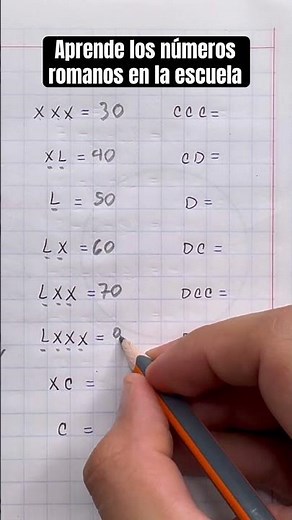 Aprende los números
romanos en la escuela
XXX = 30
XL = 40
L = 50
LX = 60
LXX = 70
LXXX =
XC =
C =
CCC =
CD =
D =
DC =
DCC =